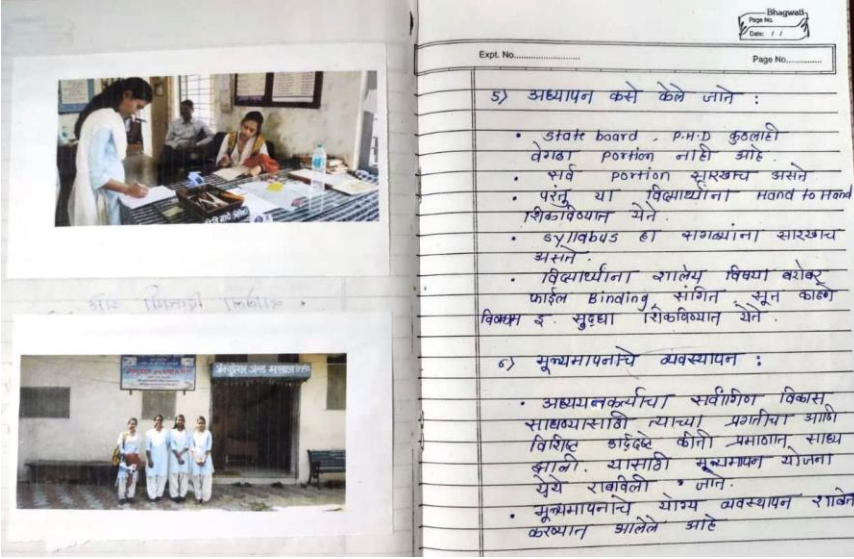 Bhagwati
Page No.
Date: / /
Expt. No.
Page No.
5) अध्यापन कसे केले जाते :
• state board . P.H.D कुठलाही
वेगळा portion नाही आहे .
• सर्व portion सारखाच असते
• परंतू या विद्यार्थ्यांना Hand to Hand
शिकविण्यात येते .
• syllabus हा सगळ्यांना सारखाच
असते .
• विद्यार्थ्यांना शालेय विषया बरोबर
फाईल Binding, संगित, सून काढणे
विणकाम इ . सुद्धा शिकविण्यात येते .
६) मूल्यमापनाचे व्यवस्थापन :
• अध्ययनकर्त्याचा सर्वांगिण विकास
साधण्यासाठी त्याच्या प्रगतीचा आणि
विशिष्ट उद्दिष्टे कीती प्रमाणात साध्य
झाली . यासाठी मूल्यमापन योजना
येथे राबविली जाते.
• मूल्यमापनाचे योग्य व्यवस्थापन शाळेत
करण्यात आलेले आहे